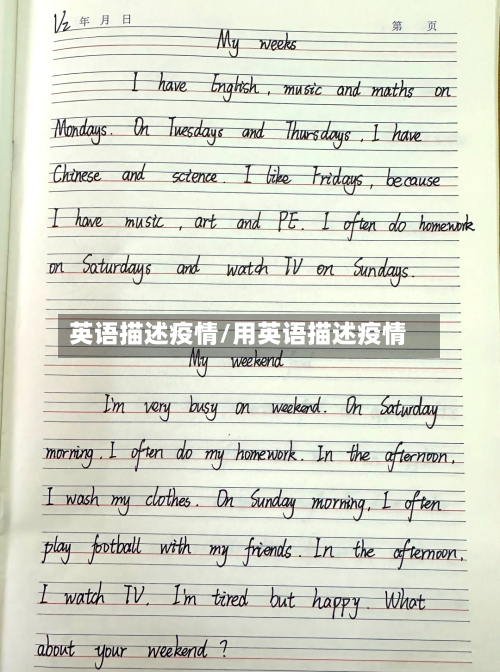 1/2 年 月 日
第 页
My weeks
I have English, music and maths on
Mondays. On Tuesdays and Thursdays, I have
Chinese and science. I like Fridays, because
I have music, art and PE. I often do homework
on Saturdays and watch TV on Sundays.
英语描述疫情/用英语描述疫情
My weekend
I'm very busy on weekend. On Saturday
morning, I often do my homework. In the afternoon,
I wash my clothes. On Sunday morning, I often
play football with my friends. In the afternoon,
I watch TV. I'm tired but happy. What
about your weekend?